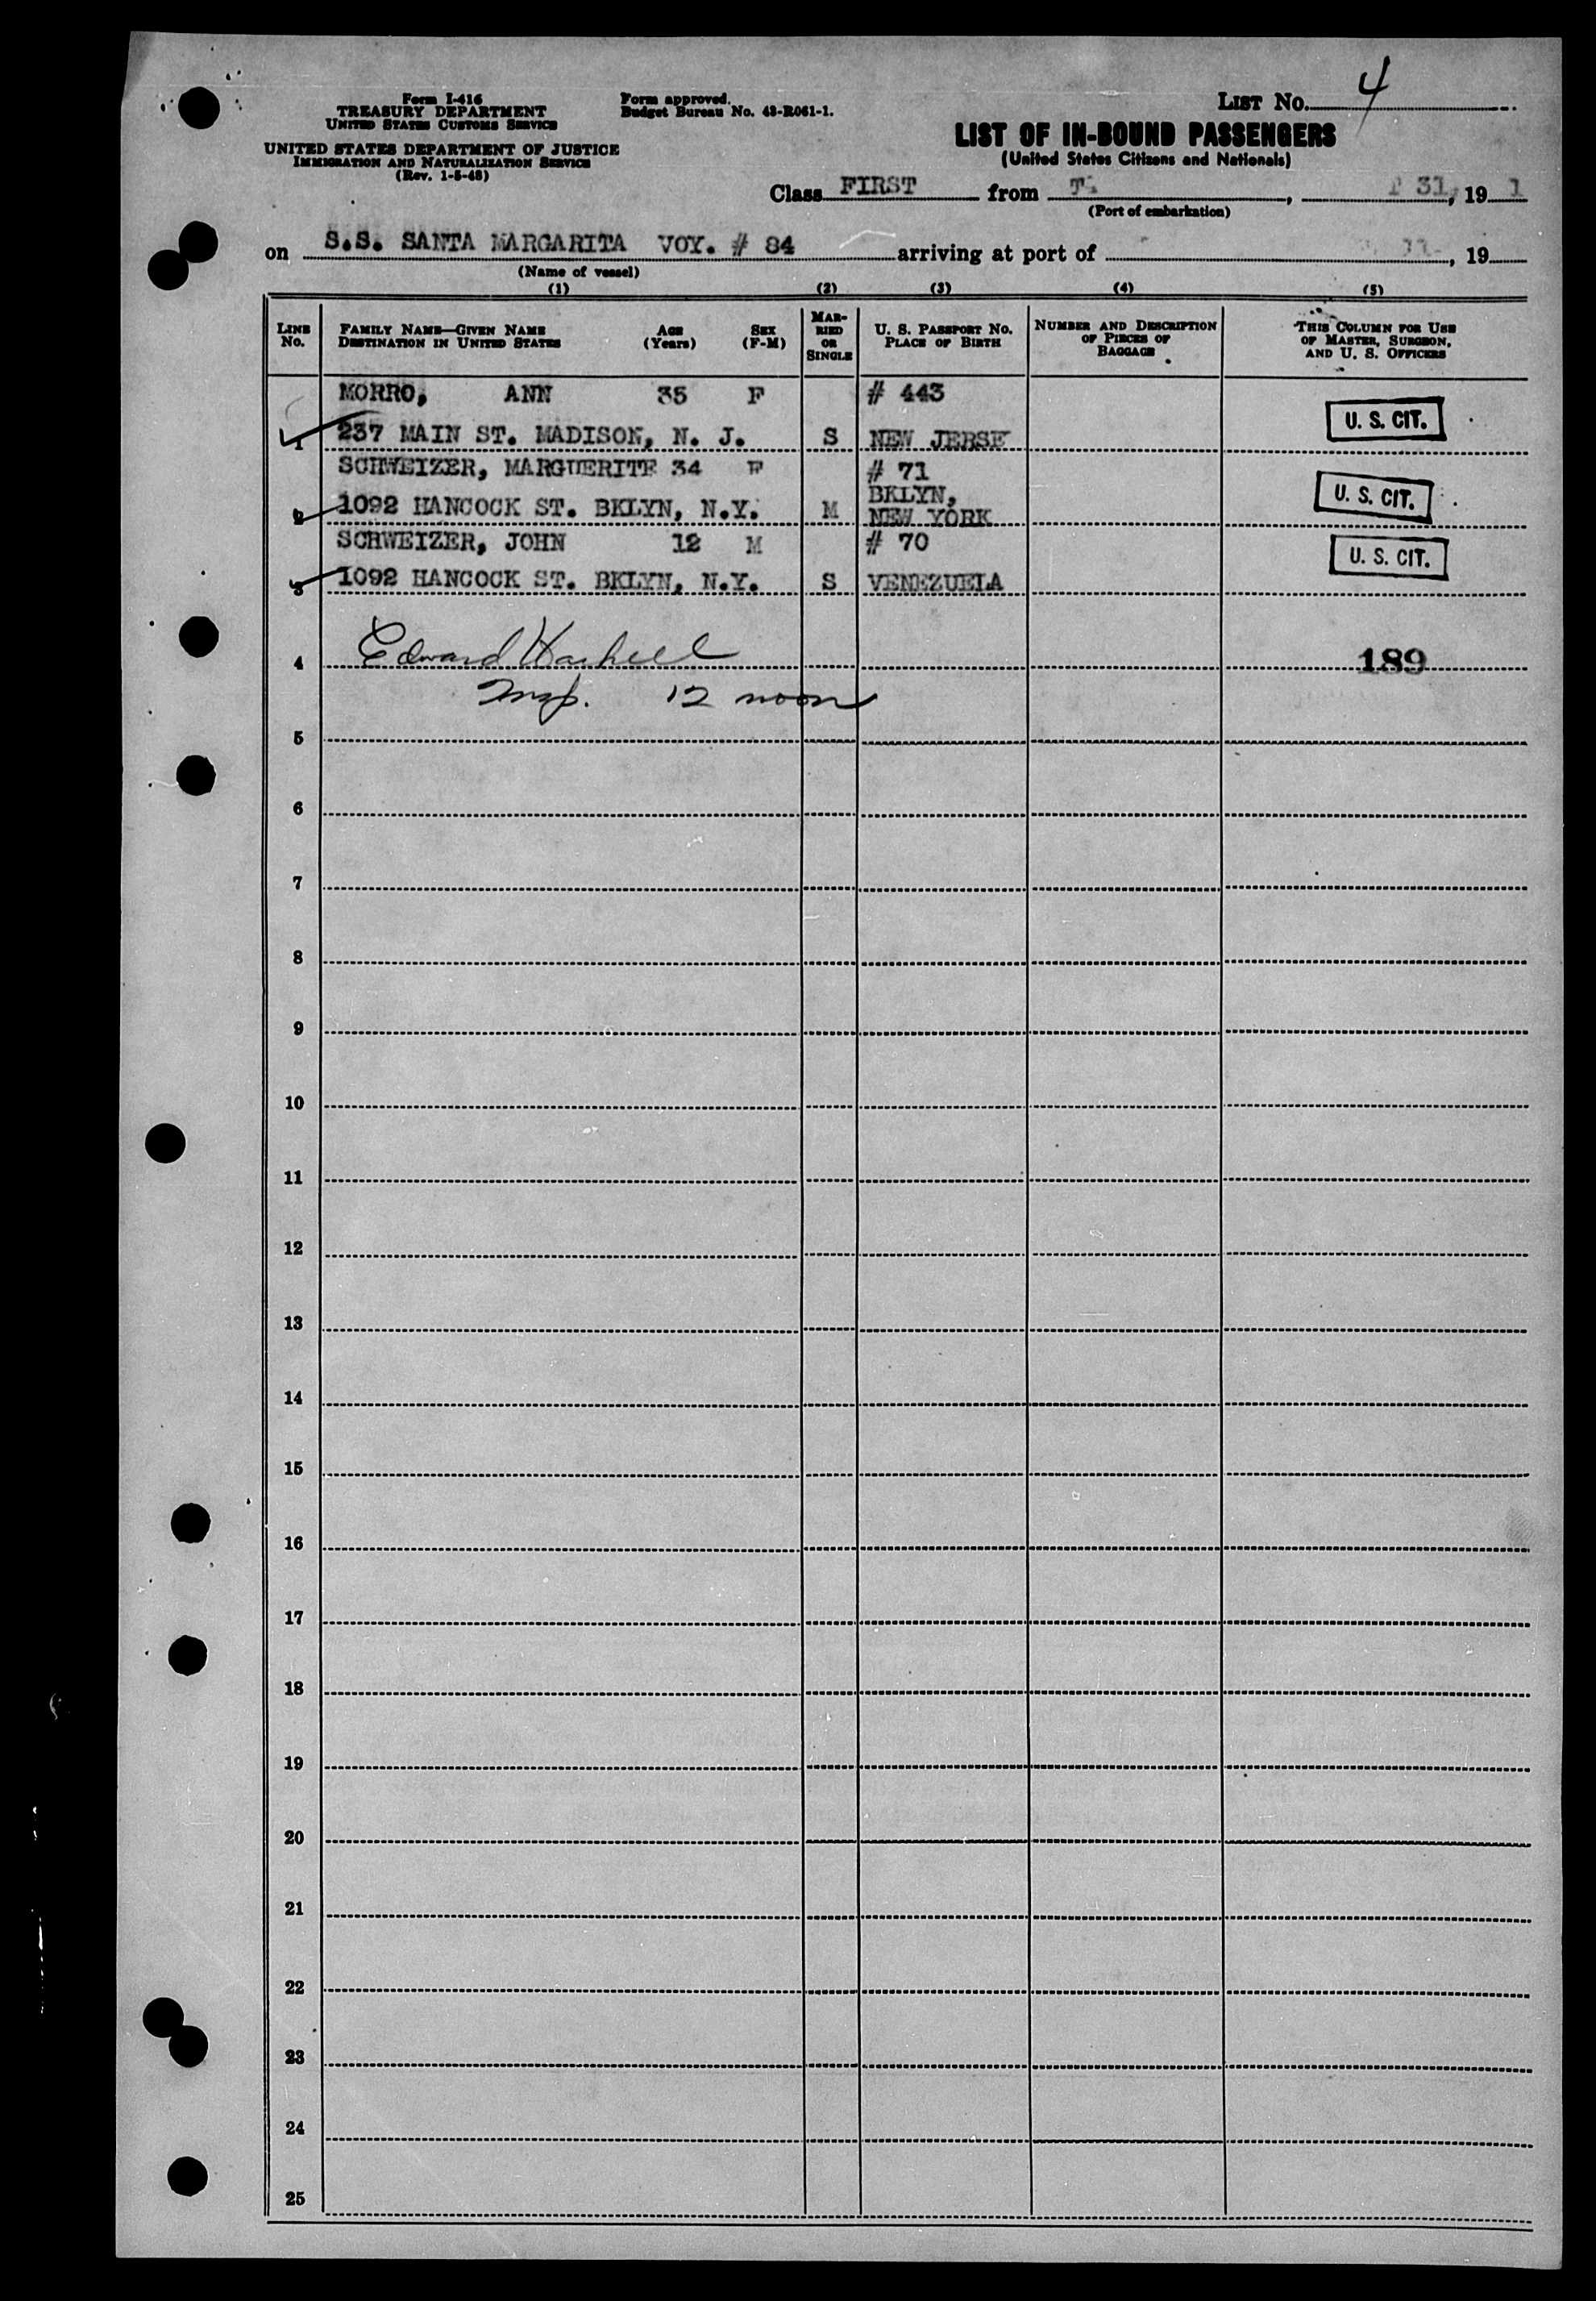 Form I-416
TREASURY DEPARTMENT
UNITED STATES CUSTOMS SERVICE
UNITED STATES DEPARTMENT OF JUSTICE
IMMIGRATION AND NATURALIZATION SERVICE
(Rev. 1-5-48)
Form approved.
Budget Bureau No. 43-R061-1.
LIST No. 4
LIST OF IN-BOUND PASSENGERS
(United States Citizens and Nationals)
Class FIRST from , 31, 19 1
(Port of embarkation)
on S.S. SANTA MARGARITA VOY. # 84 arriving at port of , 19
(Name of vessel)
(1) (2) (3) (4) (5)
LINE No.
FAMILY NAME—GIVEN NAME
DESTINATION IN UNITED STATES
AGE (Years)
SEX (F-M)
MARRIED OR SINGLE
U. S. PASSPORT NO.
PLACE OF BIRTH
NUMBER AND DESCRIPTION
OF PIECES OF
BAGGAGE
THIS COLUMN FOR USE
OF MASTER, SURGEON,
AND U. S. OFFICERS
MORRO, ANN 35 F # 443
1 237 MAIN ST. MADISON, N. J. S NEW JERSE U. S. CIT.
SCHWEIZER, MARGUERITE 34 F # 71
BKLYN,
2 1092 HANCOCK ST. BKLYN, N.Y. M NEW YORK U. S. CIT.
SCHWEIZER, JOHN 12 M # 70
3 1092 HANCOCK ST. BKLYN, N.Y. S VENEZUELA U. S. CIT.
4 Edward 189
Insp. 12 noon
5
6
7
8
9
10
11
12
13
14
15
16
17
18
19
20
21
22
23
24
25